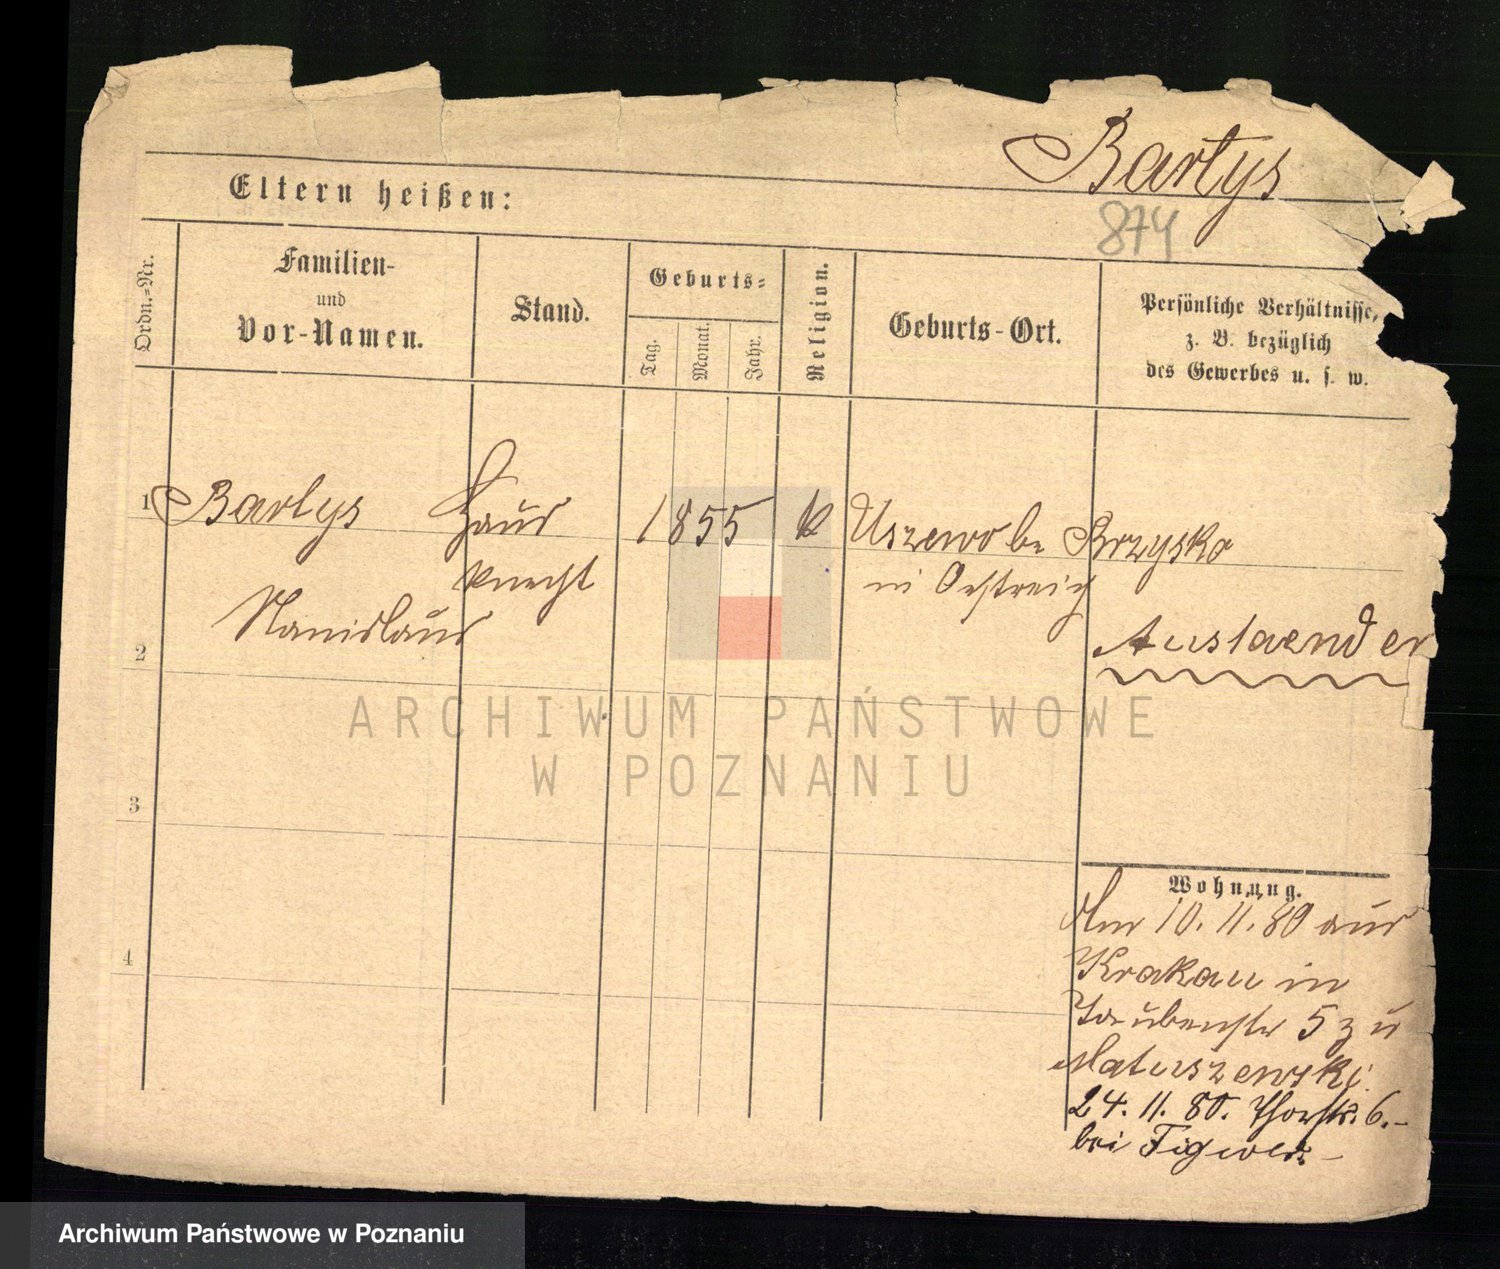 Bartys
Eltern heißen:
874
Ordn.-Nr.
Familien-
und
Vor-Namen.
Stand.
Geburts-
Tag.
Monat.
Jahr.
Religion.
Geburts-Ort.
Persönliche Verhältnisse,
z. B. bezüglich
des Gewerbes u. s. w.
1 Bartys Haus 1855 k Uszewo be Brzysko
knecht in Oestreich
Stanislaus
Auslaender
2
3
4
ARCHIWUM PAŃSTWOWE
W POZNANIU
Wohnung.
Am 10. 11. 80 aus
Krakau in
5 zu
Matuszewski
24. 11. 80. 6.-
bei
Archiwum Państwowe w Poznaniu